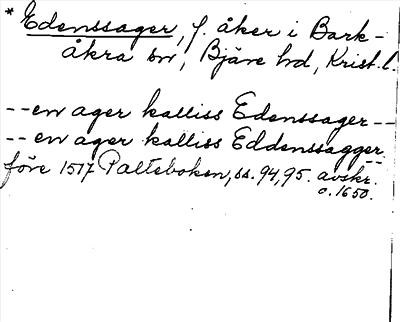 * Edenssager, f. åker i Bark-
åkra sn, Bjäre hd, Krist. l.
-- en ager kalliss Edenssager --
-- en ager kalliss Eddenssagger --
före 1517 Palteboken, ss. 94, 95. avskr.
c. 1650.